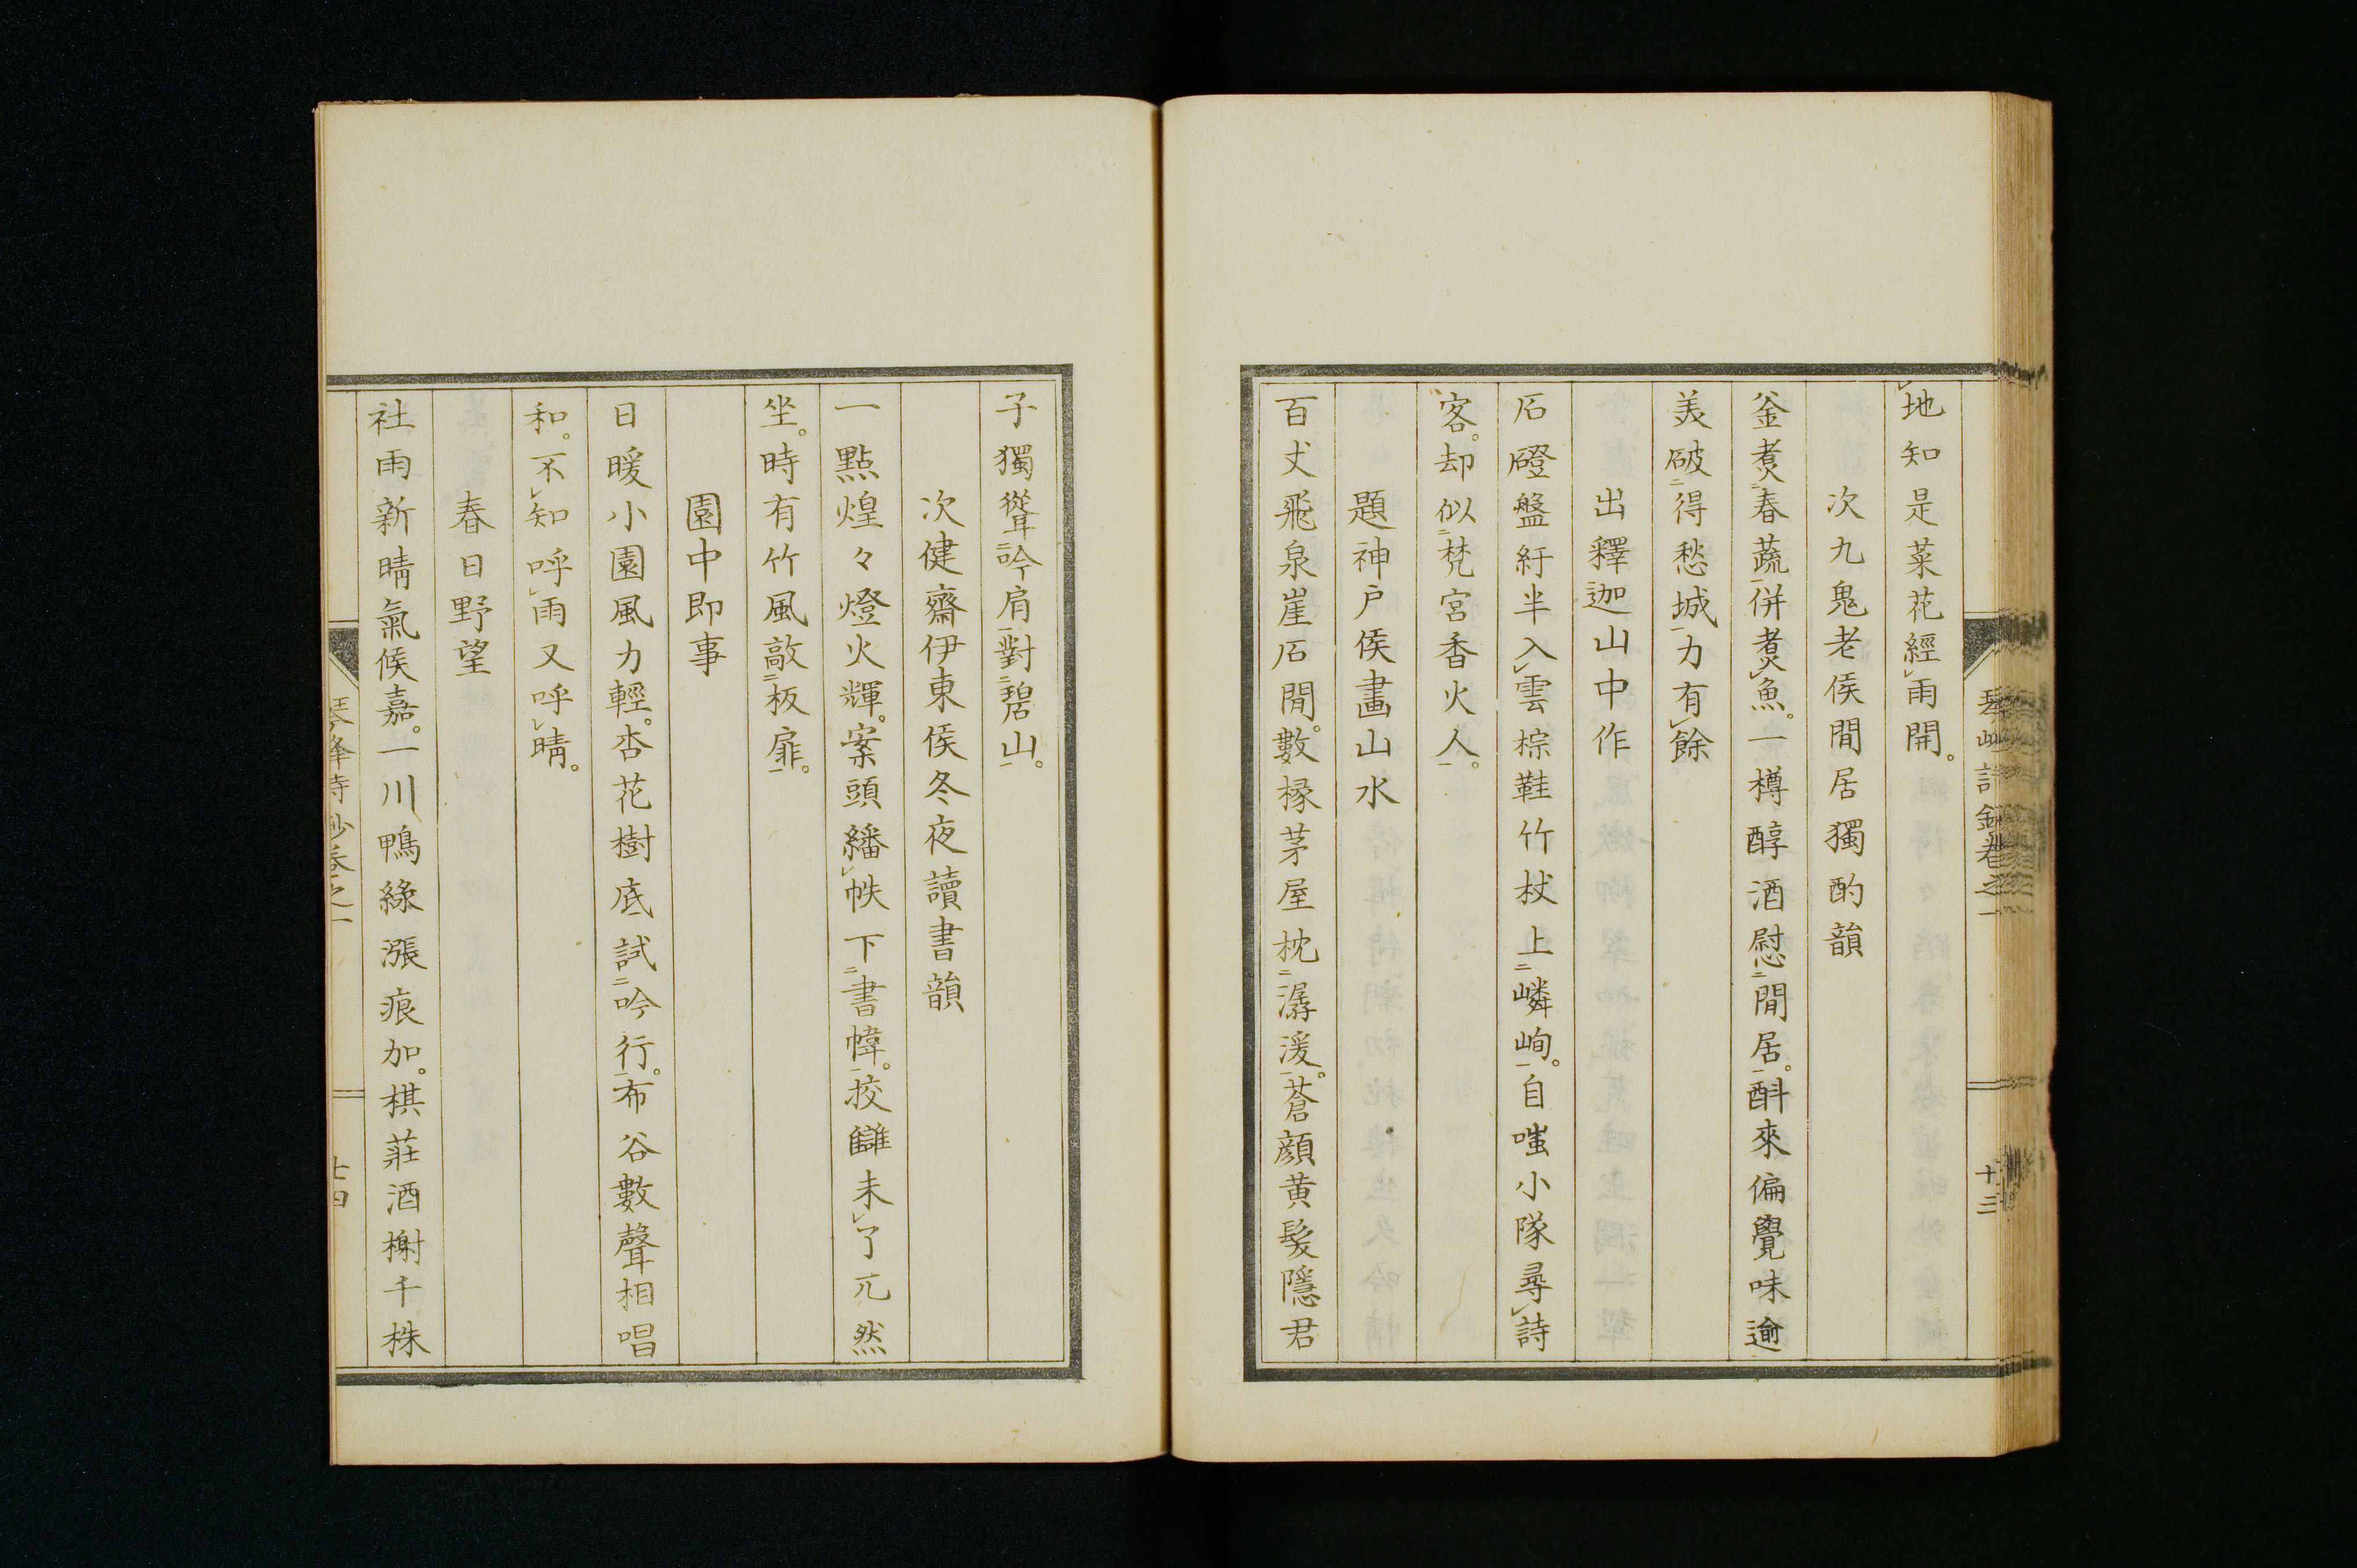 地知是菜花經雨開。
次九鬼老侯閒居獨酌韻
釜煑春蔬併煑魚。一樽醇酒慰閒居。酙來偏覺味逾
美破得愁城力有餘
出釋迦山中作
石磴盤紆半入雲棕鞋竹杖上嶙峋。自嗤小隊尋詩
客。却似梵宮香火人。
題神戶侯畫山水
百丈飛泉崖石間。數椽茅屋枕潺湲。蒼顏黃髮隱君
十三
子獨聳吟肩對碧山。
次健齋伊東侯冬夜讀書韻
一點煌々燈火輝。案頭繙帙下書幃。挍讎未了兀然
坐。時有竹風敲板扉。
園中即事
日暖小園風力輕。杏花樹底試吟行。布谷數聲相唱
和。不知呼雨又呼晴。
春日野望
社雨新晴氣候嘉。一川鴨綠漲痕加。棋莊酒榭千株